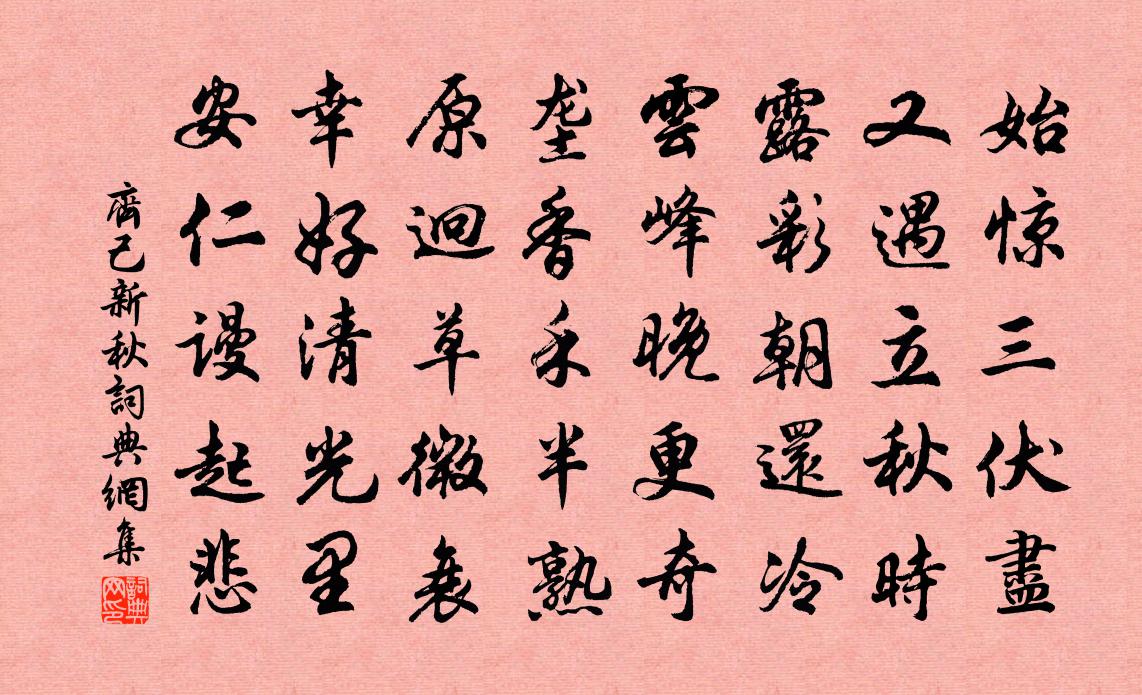 始惊三伏盡
又遇立秋時
露彩朝還冷
雲峰晚更奇
垄香禾半熟
原迥草微衰
幸好清光里
安仁谩起悲
齊己新秋詞典網集
詞典网印